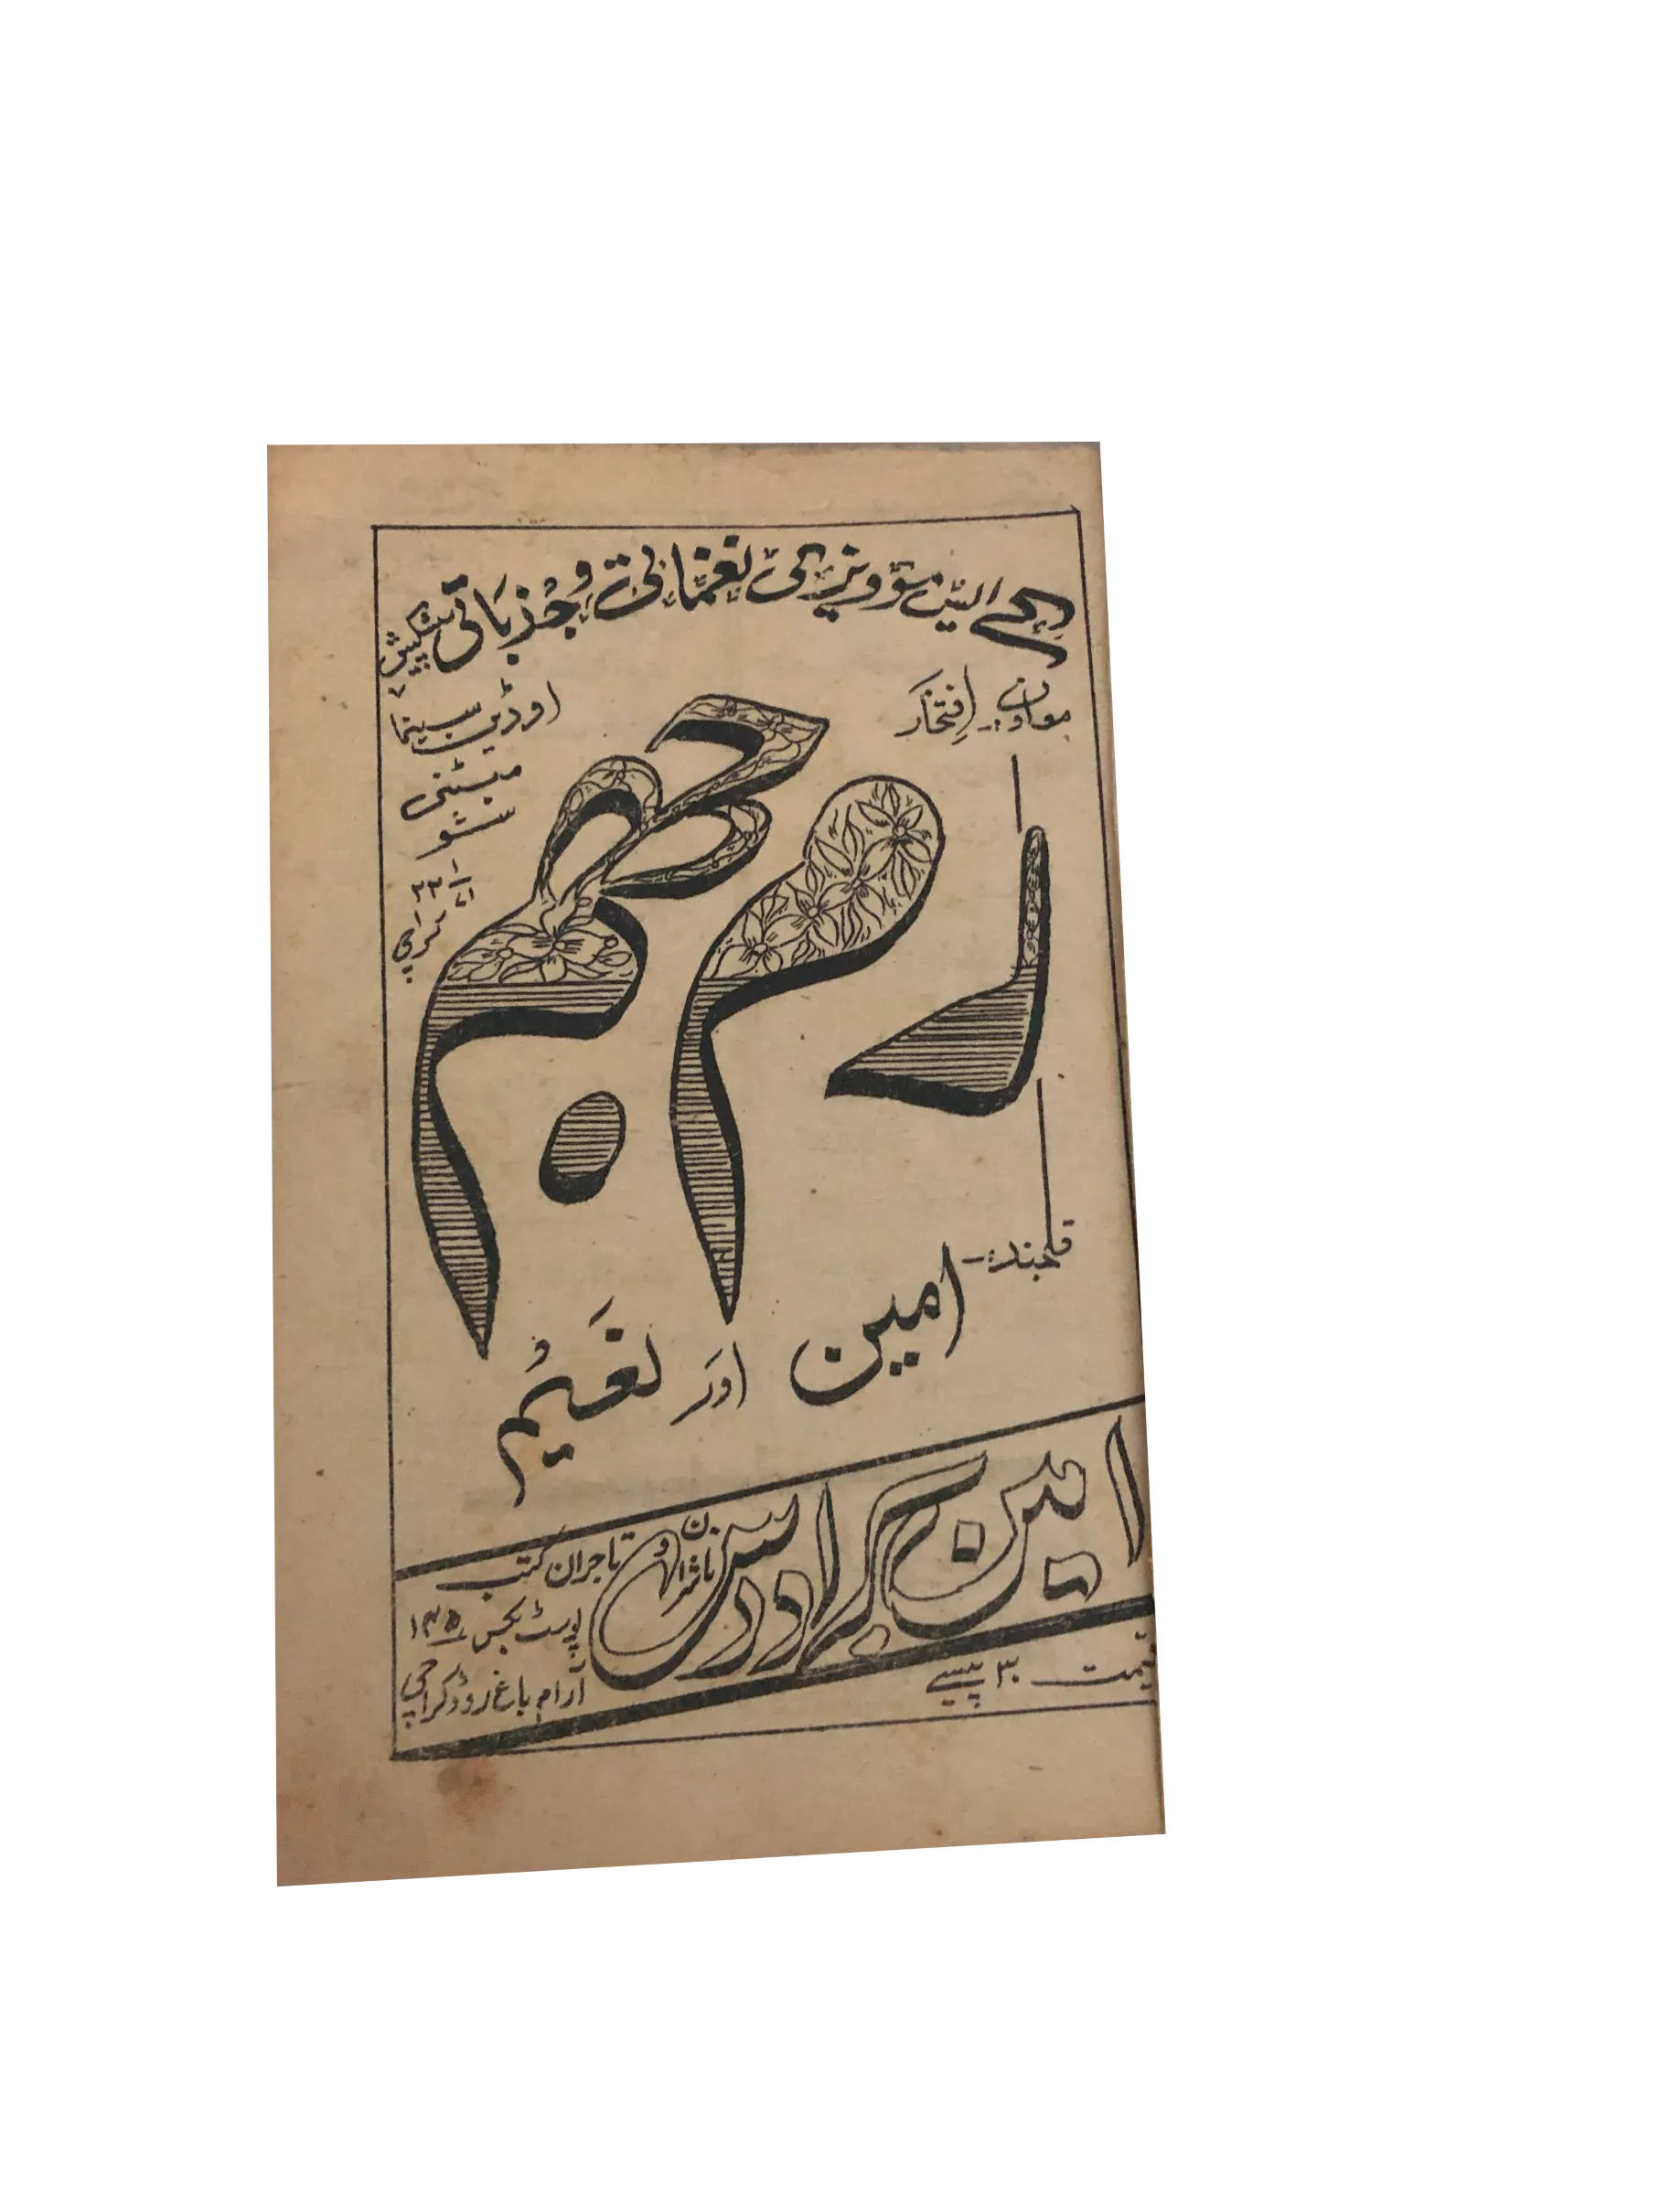 جے ایس موویز کی نغماتی و جذباتی پیشکش
معاون:- افتخار
اوڈین سینما
میٹنی
شو
کراچی
رم جھم
قلمبند:-
امین اور نعیم
امین برادرس
ناشران و تاجران کتب
پوسٹ بکس ۱۳۵
آرام باغ روڈ کراچی
قیمت ۳۰ پیسے